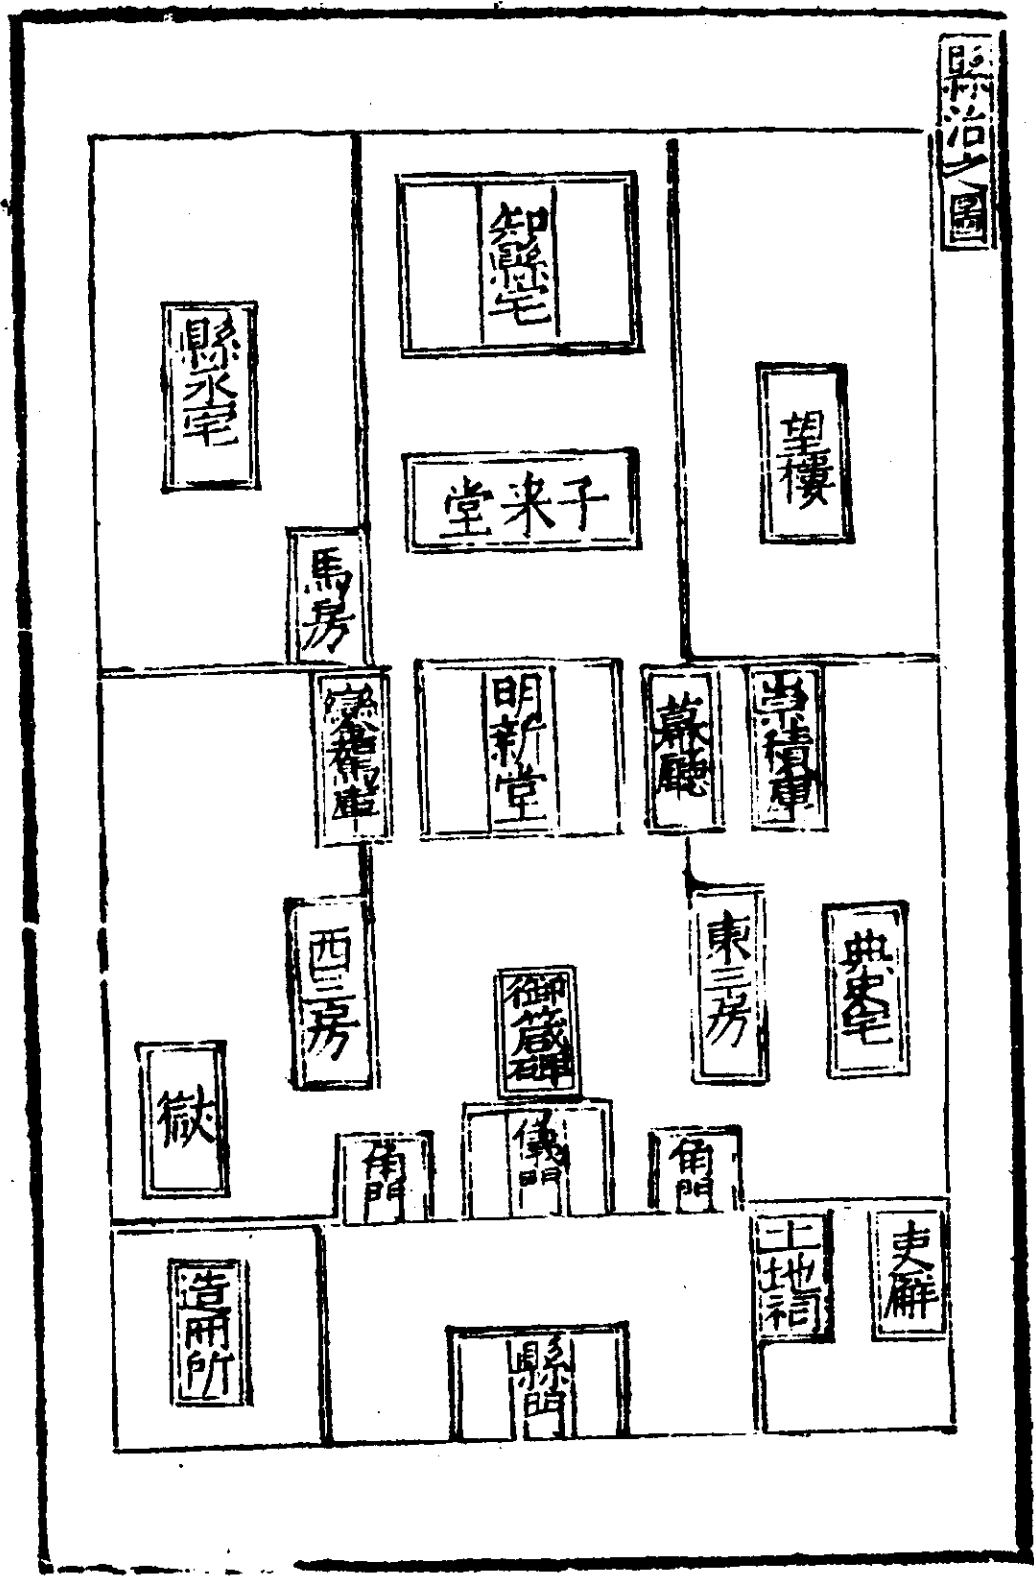 縣治之圖
知縣宅
縣丞宅
望樓
堂来子
馬房
鑾駕庫
明新堂
幕廳
崇積庫
西三房
東三房
典史宅
御箴碑
獄
角門
儀門
角門
土地祠
吏廨
造冊所
縣門